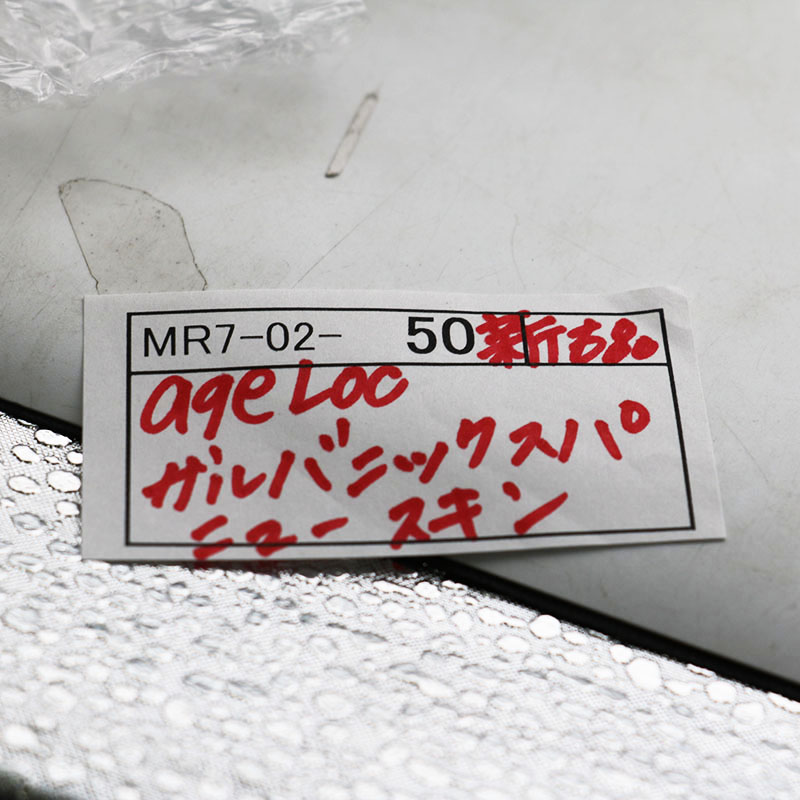 MR7-02- 50 新古
ageLoc
ガルバニックスパ
ニュースキン